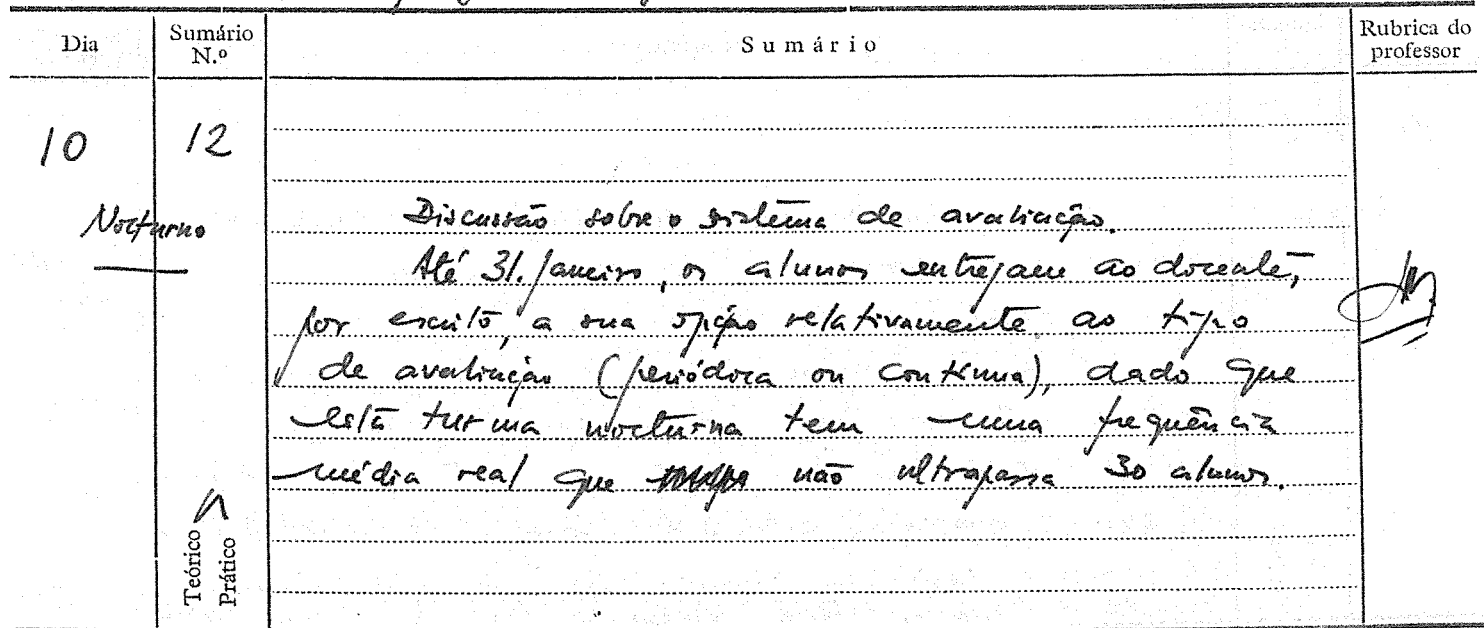 Dia
Sumário
N.º
Sumário
Rubrica do
professor
10
12
Nocturno
Discussão sobre o sistema de avaliação.
Até 31. Janeiro, os alunos entregam ao docente,
por escrito, a sua opção relativamente ao tipo
de avaliação (periódica ou contínua), dado que
esta turma nocturna tem uma frequência
média real que não ultrapassa 30 alunos.
Teórico
Prático